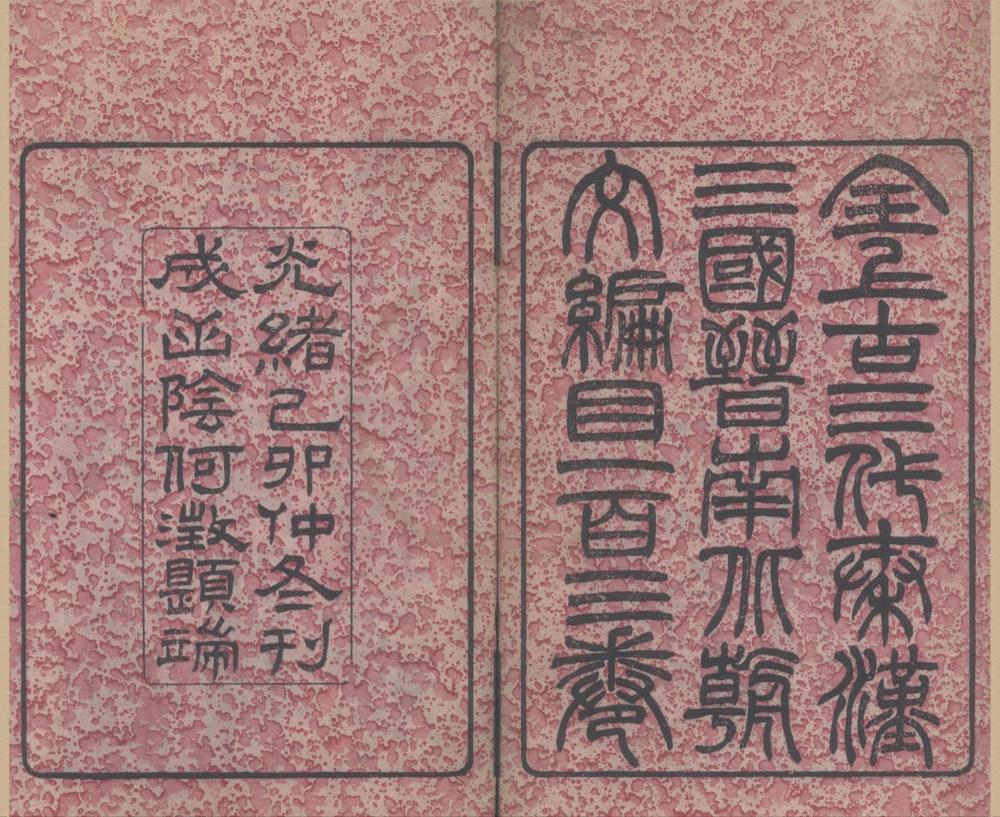 全上古三代秦漢
三國晉南北朝
文編目一百三卷
光緒己卯仲冬刊
成山陰何澂題耑